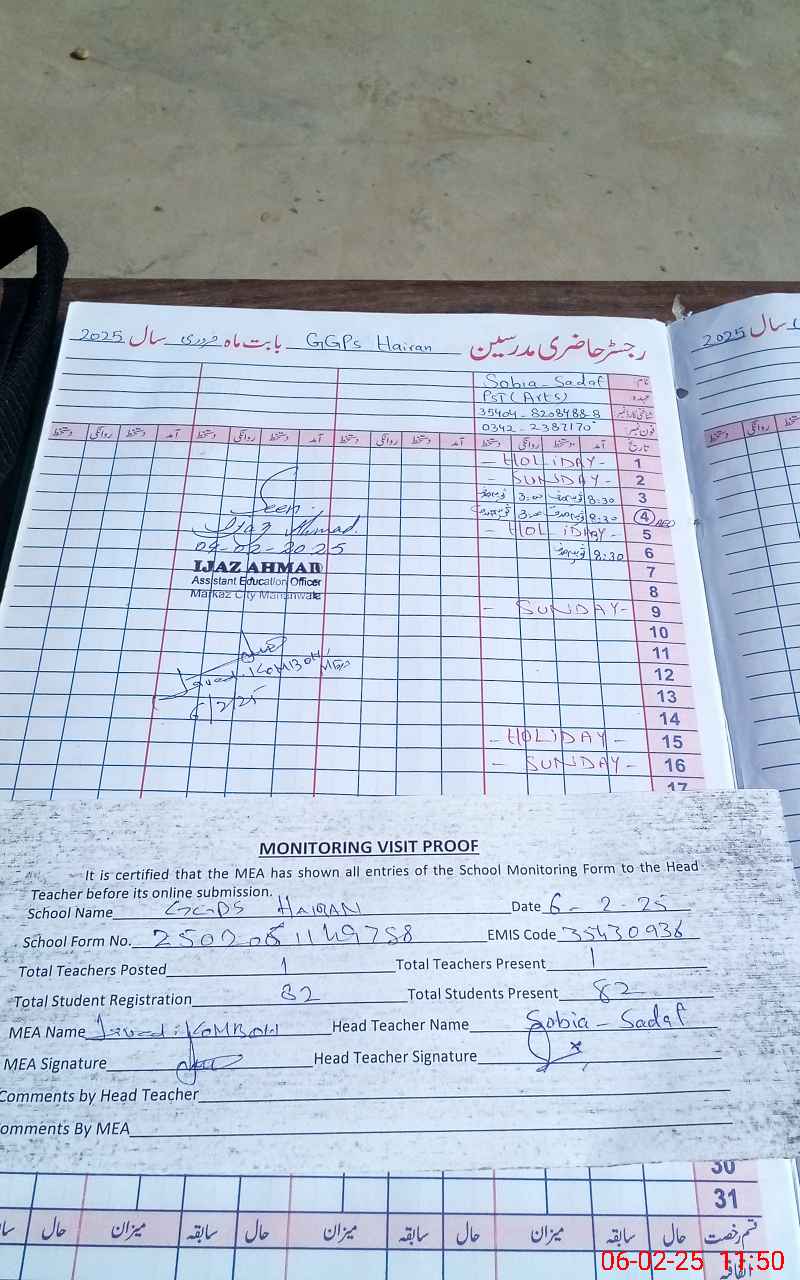 رجسٹر حاضری مدرسین GGPS Hairan بابت ماہ فروری سال 2025
2025 سال
نام Sobia - Sadaf
عہدہ PST (Arts)
شناختی کارڈ نمبر 35404-8208488-8
فون نمبر 0342-2387170
تاریخ آمد دستخط روانگی دستخط آمد دستخط روانگی دستخط آمد دستخط روانگی دستخط
1 - HOLiDAY -
2 - SUNDAY -
3 8:30 3:00
4 8:30 3:00
5 - HOLiDAY -
6 8:30
7
8
9 - SUNDAY -
10
11
12
13
14
15 - HOLiDAY -
16 - SUNDAY -
17
Seen.
Ijaz Ahmad.
04-02-2025
IJAZ AHMAD
Assistant Education Officer
Markaz City Mananwala
Javed : KOMBOH
6/2/25
MONITORING VISIT PROOF
It is certified that the MEA has shown all entries of the School Monitoring Form to the Head
Teacher before its online submission.
School Name GGPS HAIRAN Date 6-2-25
School Form No. 2502051149758 EMIS Code 35430936
Total Teachers Posted 1 Total Teachers Present 1
Total Student Registration 82 Total Students Present 82
MEA Name Javed : KOMBOH Head Teacher Name Sobia - Sadaf
MEA Signature Head Teacher Signature
Comments by Head Teacher
omments By MEA
30
31
قسم رخصت حال سابقہ میزان حال سابقہ میزان حال سابقہ میزان حال
06-02-25 11:50